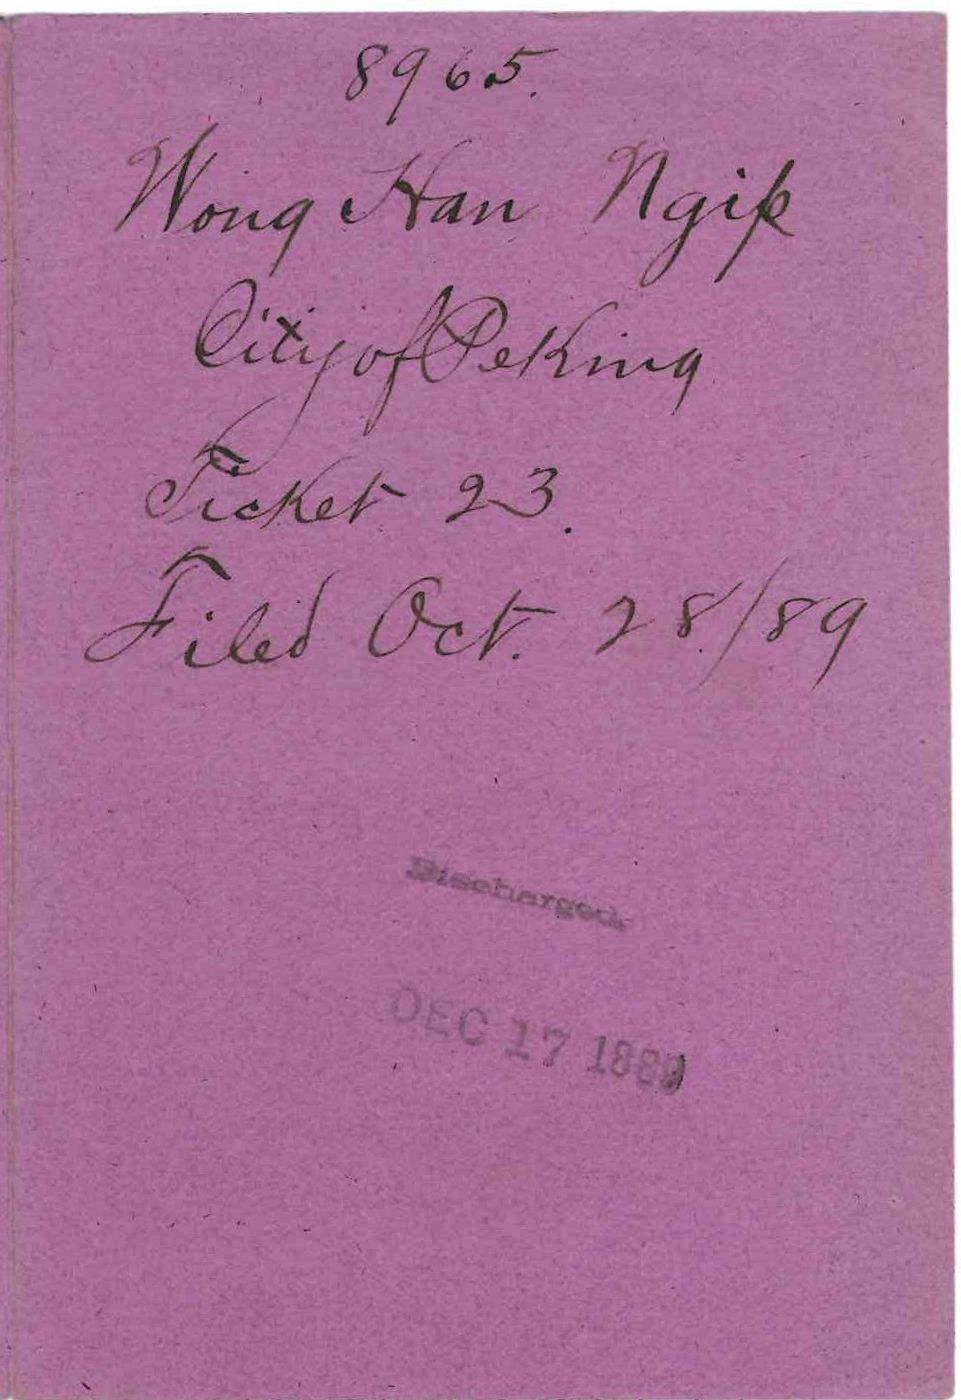 8965.
Wong Han Ngip
City of Peking
Ticket 23.
Filed Oct. 28/89
Discharged.
DEC 17 1889